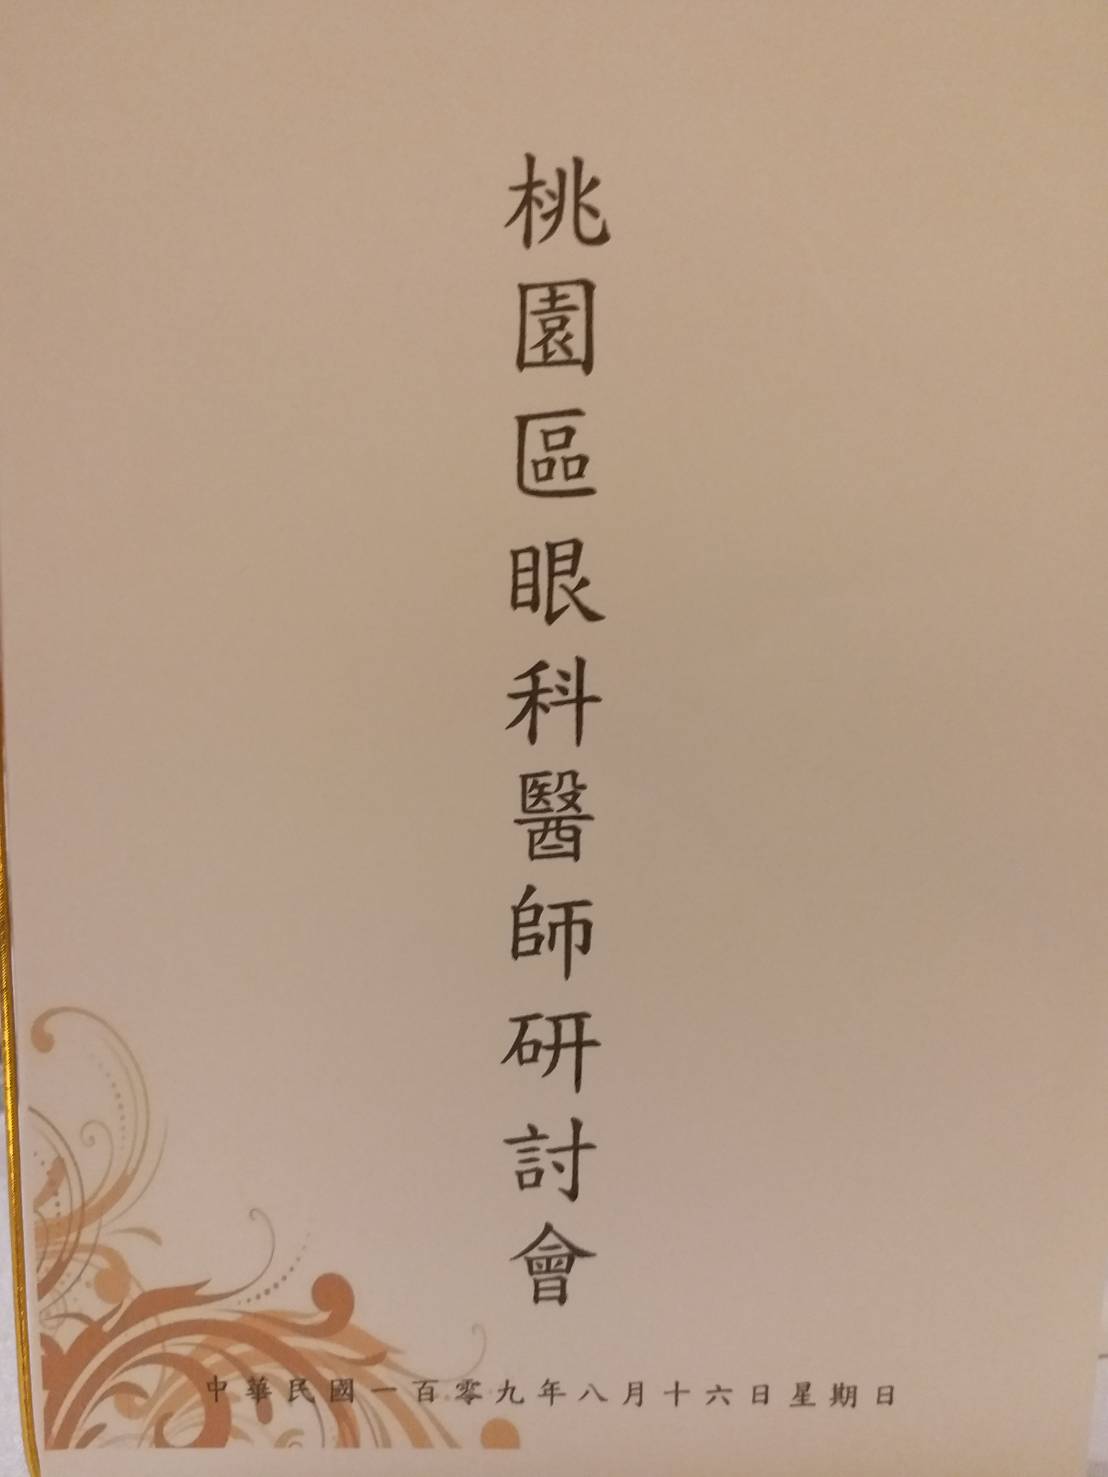 桃園區眼科醫師研討會
中華民國一百零九年八月十六日星期日